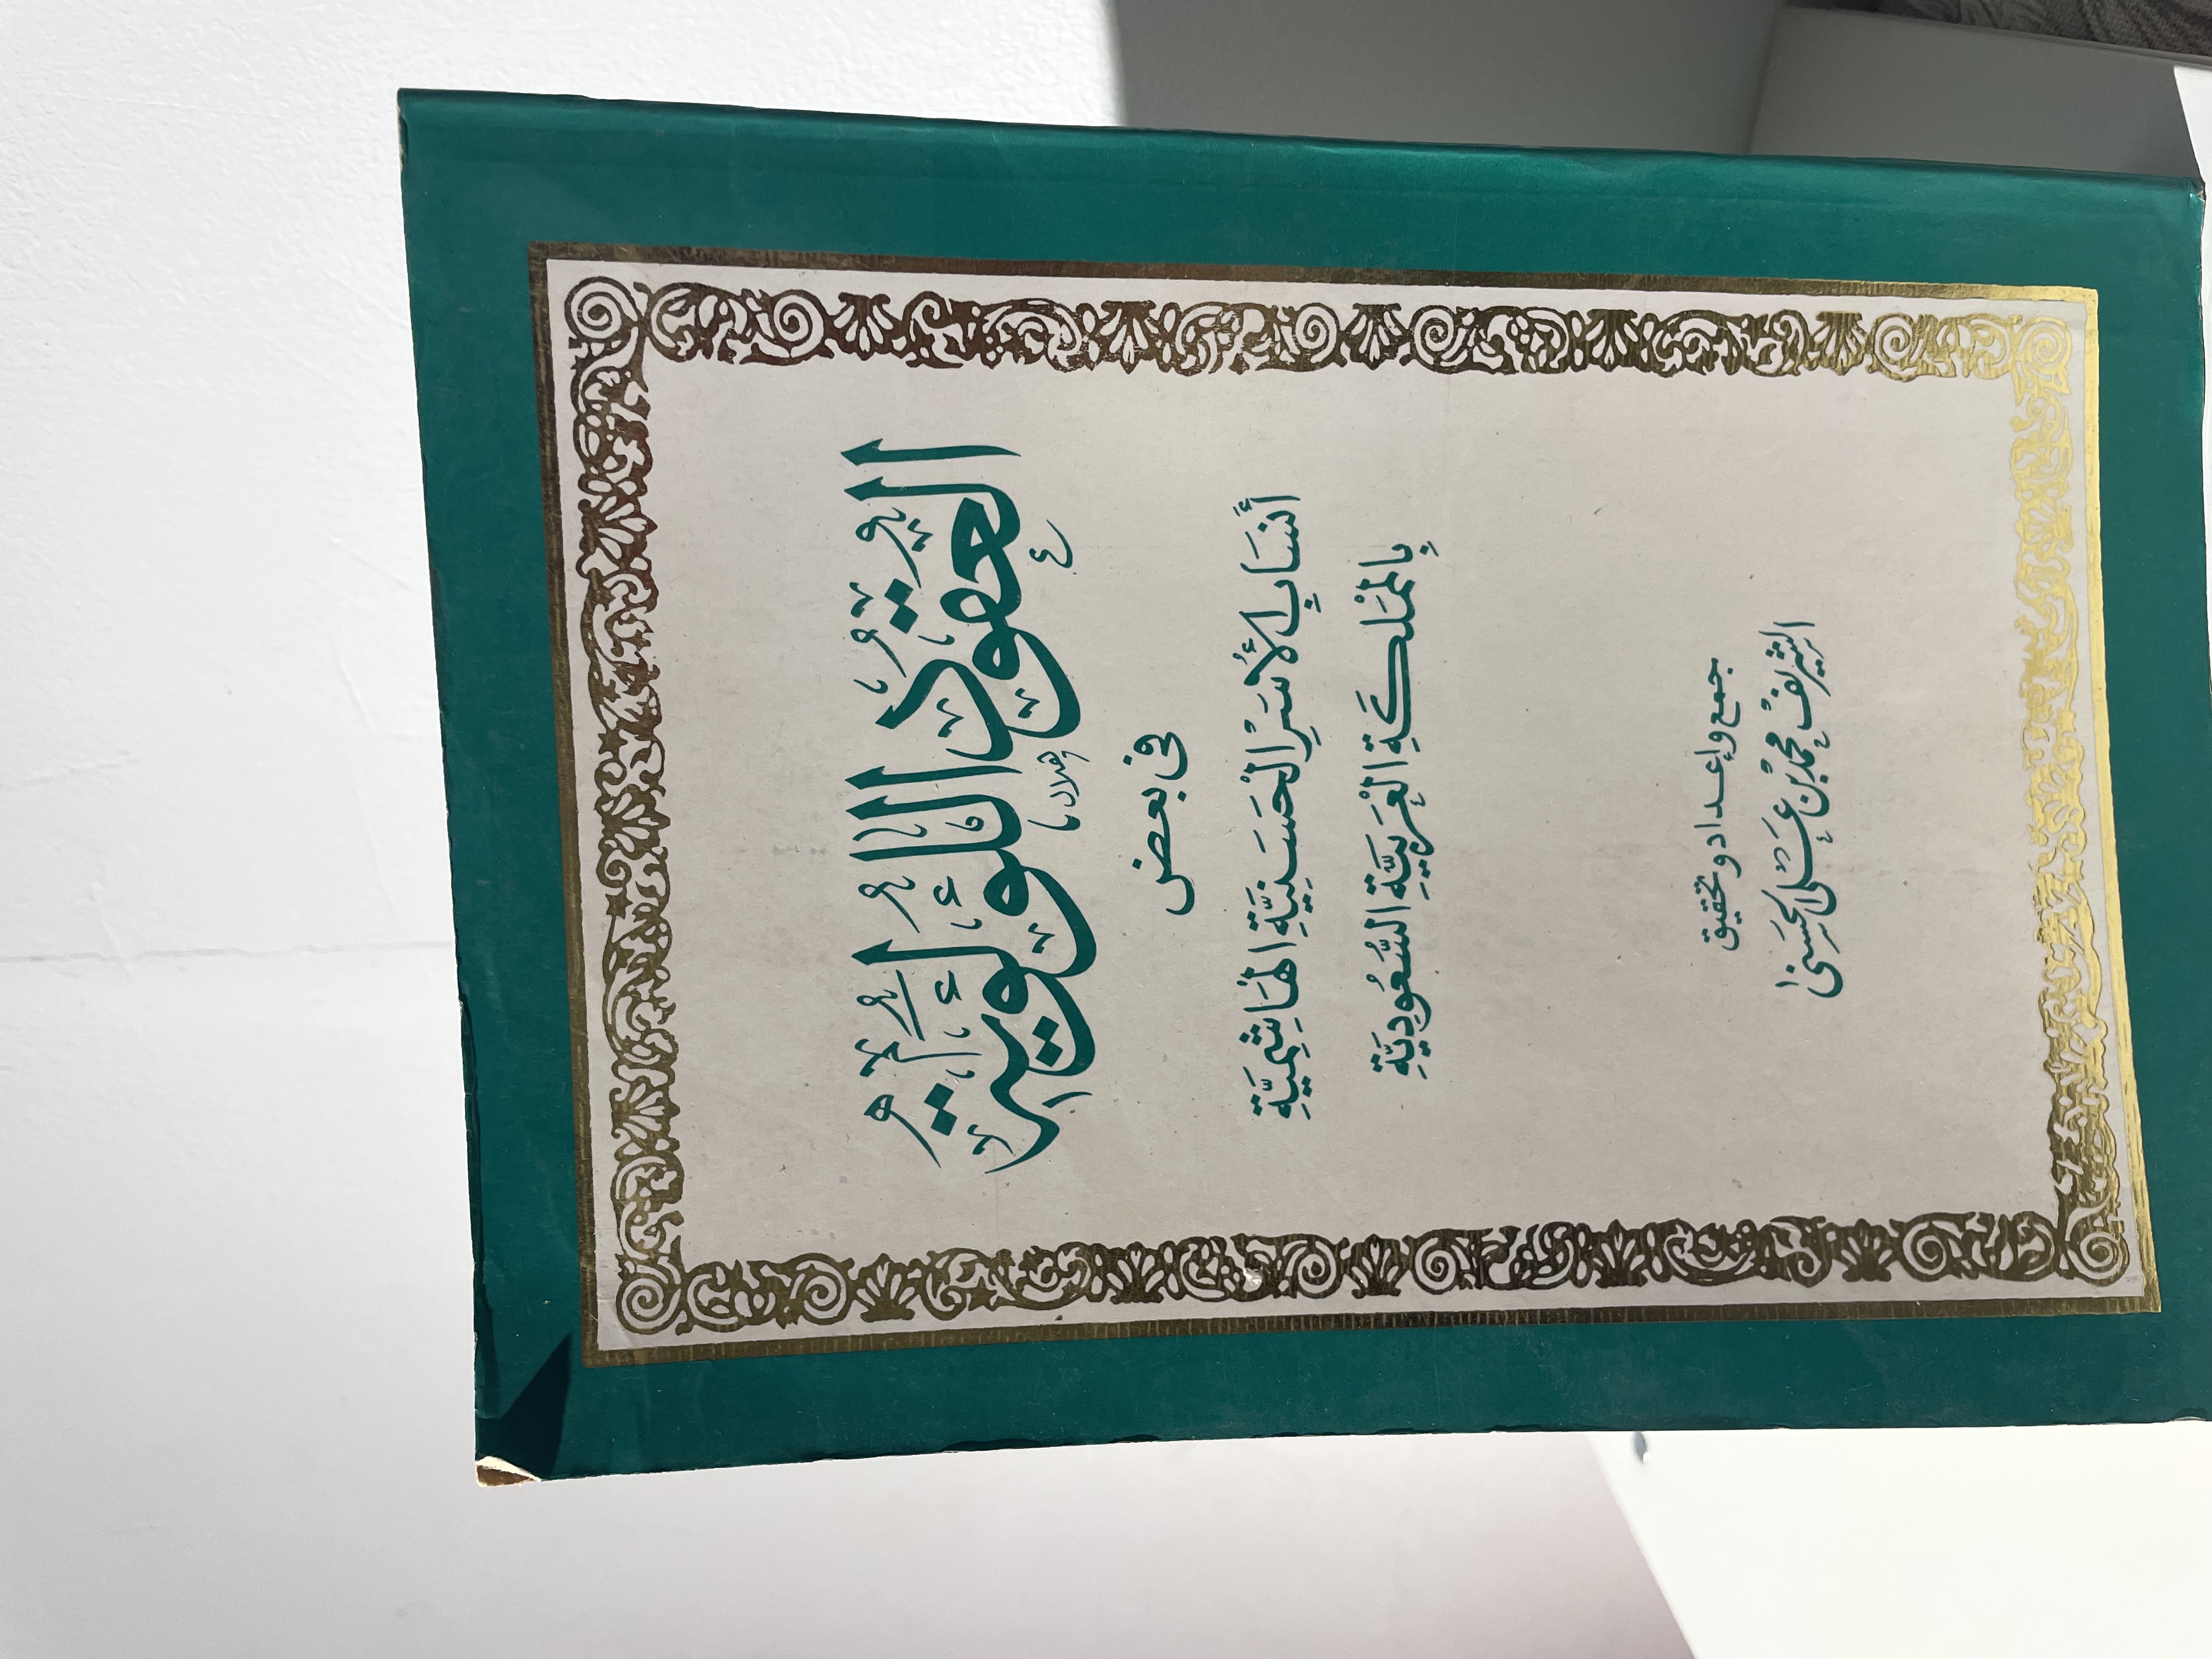 العُقُود اللؤلؤية
هلال
فى بعض
أَنسَابِ الأُسَرِ الْحَسَنِيَّةِ الْهَاشِمِيَّةِ
بِالْمَمْلَكَةِ الْعَرَبِيَّةِ السُّعُودِيَّةِ
جمع وإعداد وتحقيق
الشريف محمد بن على الحسنى